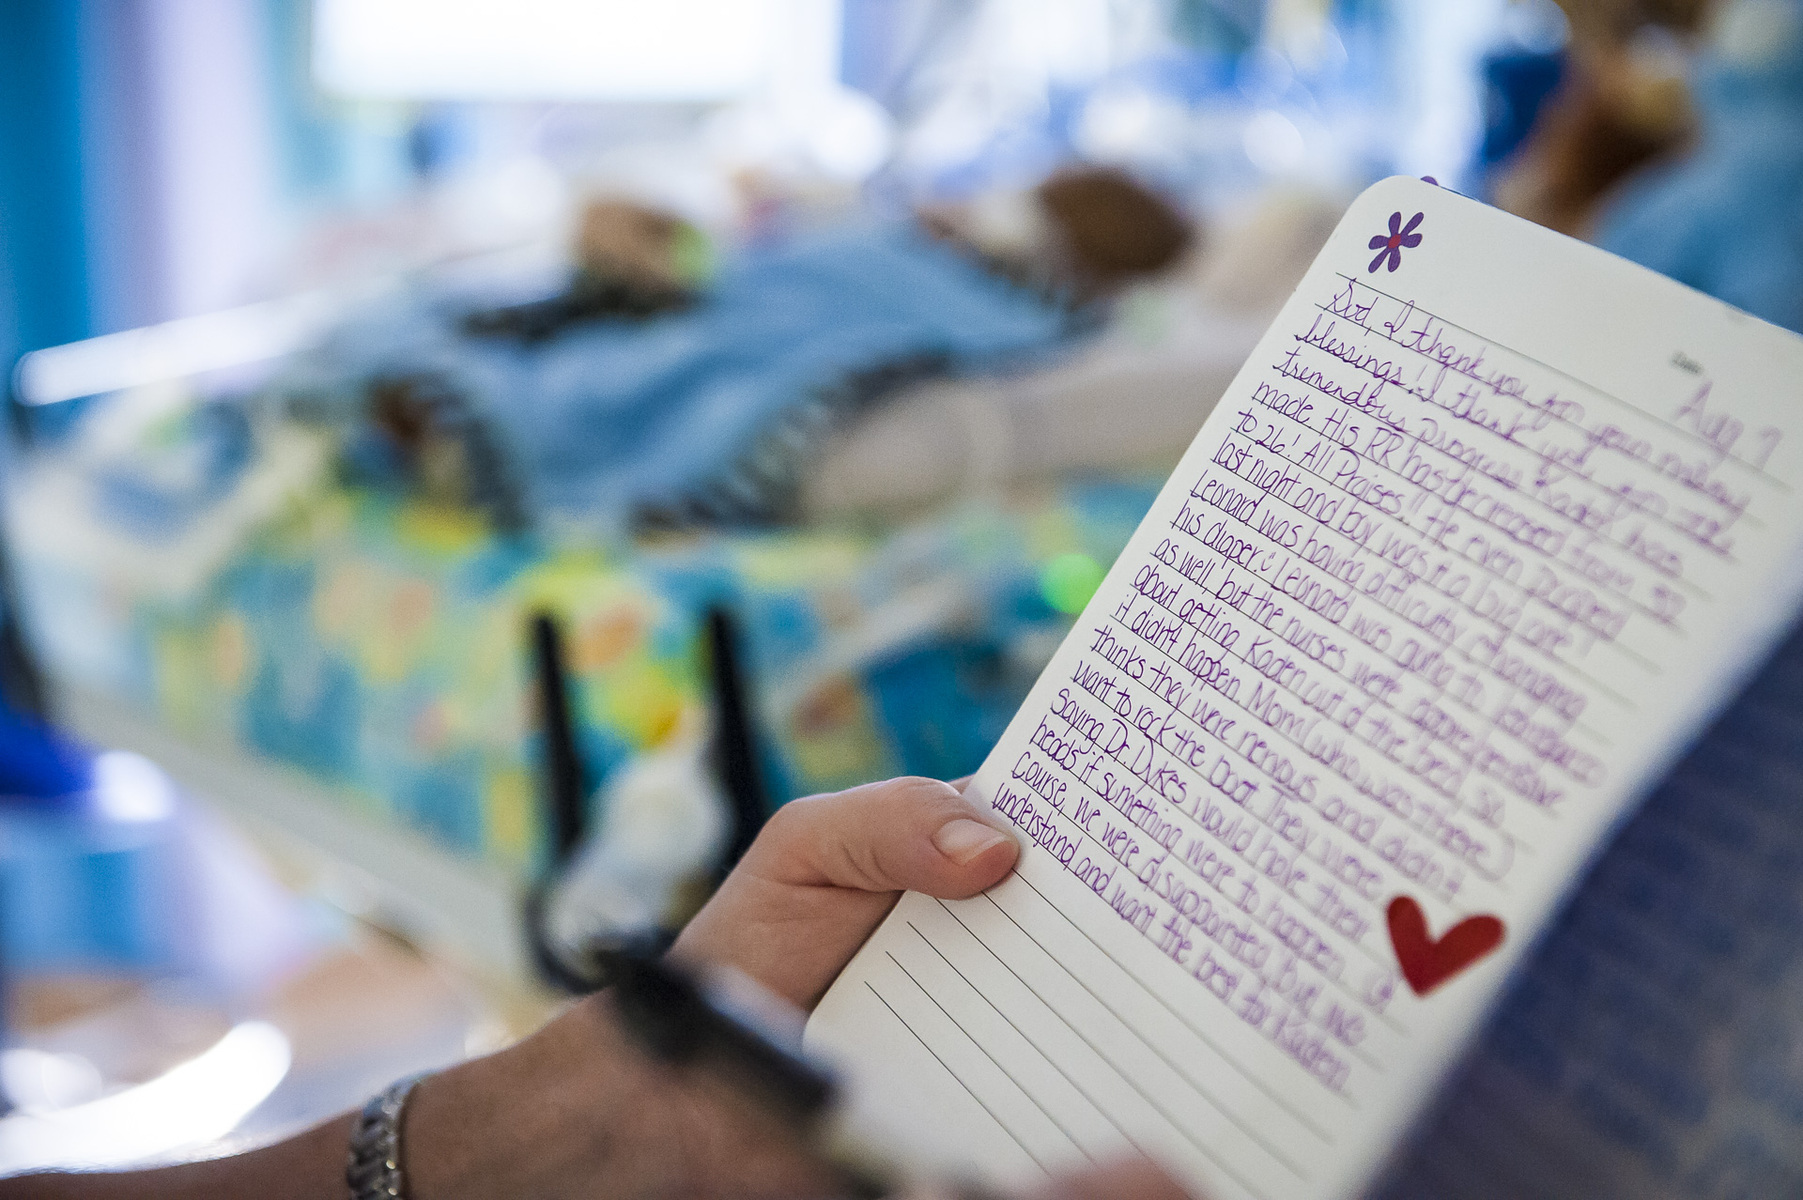 Date Aug 9
God, I thank you for your many
blessings! I thank you for the
tremendous progress Kaden has
made. His RR has decreased from 32
to 26! All Praises!! He even pooped
last night and boy was it a big one!
Leonard was having difficulty changing
his diaper. Leonard was going to
as well, but the nurses were apprehensive
about getting Kaden out of the bed, so
it didn't happen. Mom (who was there)
thinks they were nervous and didn't
want to rock the boat. They were
saying Dr. Dykes would have their
heads if something were to happen. Of
course, we were disappointed, but we
understand and want the best for Kaden.